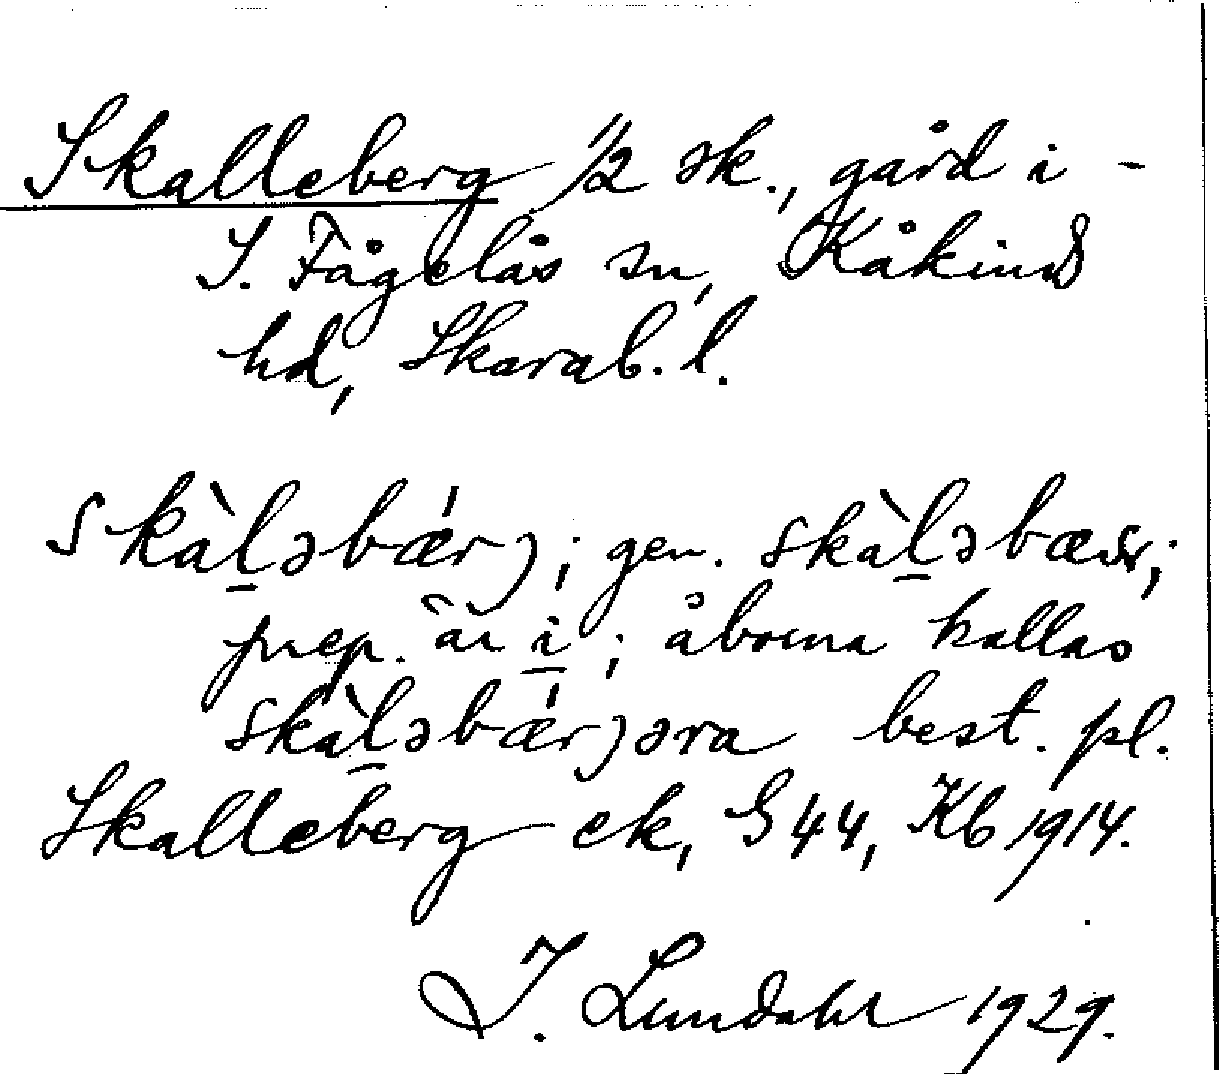 Skalleberg 1/2 sk., gård i -
S. Fågelås sn, Kåkinds
hd, Skarab. l.
skàl̠əbǽrj; gen. skàl̠əbæ
prep. är i; åborna kallas
skàl̠əbǽrjəra best. pl.
Skalleberg ek, G 44, Kb 1914.
I. Lundahl 1929.